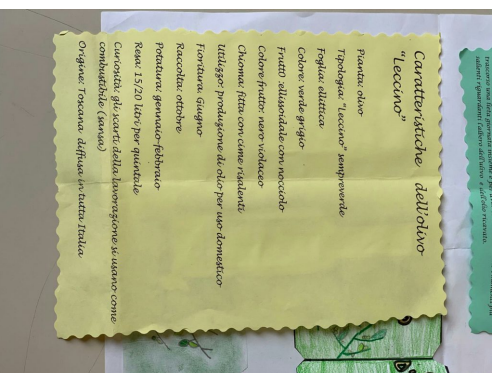 Caratteristiche dell'olivo
"Leccino"
Pianta: olivo
Tipologia: "Leccino" sempreverde
Foglia: ellittica
Colore: verde grigio
Frutto: ellissoidale con nocciolo
Colore frutto: nero violaceo
Chioma: fitta con cime risalenti
Utilizzo: produzione di olio per uso domestico
Fioritura: Giugno
Raccolta: ottobre
Potatura: gennaio-febbraio
Resa: 15/20 litri per quintale
Curiosità: gli scarti della lavorazione si usano come
combustibile (sansa)
Origine: Toscana diffusa in tutta Italia
trascorso una lieta giornata insieme
salienti riguardanti l'albero dell'ulivo e dell'olio ricavato.